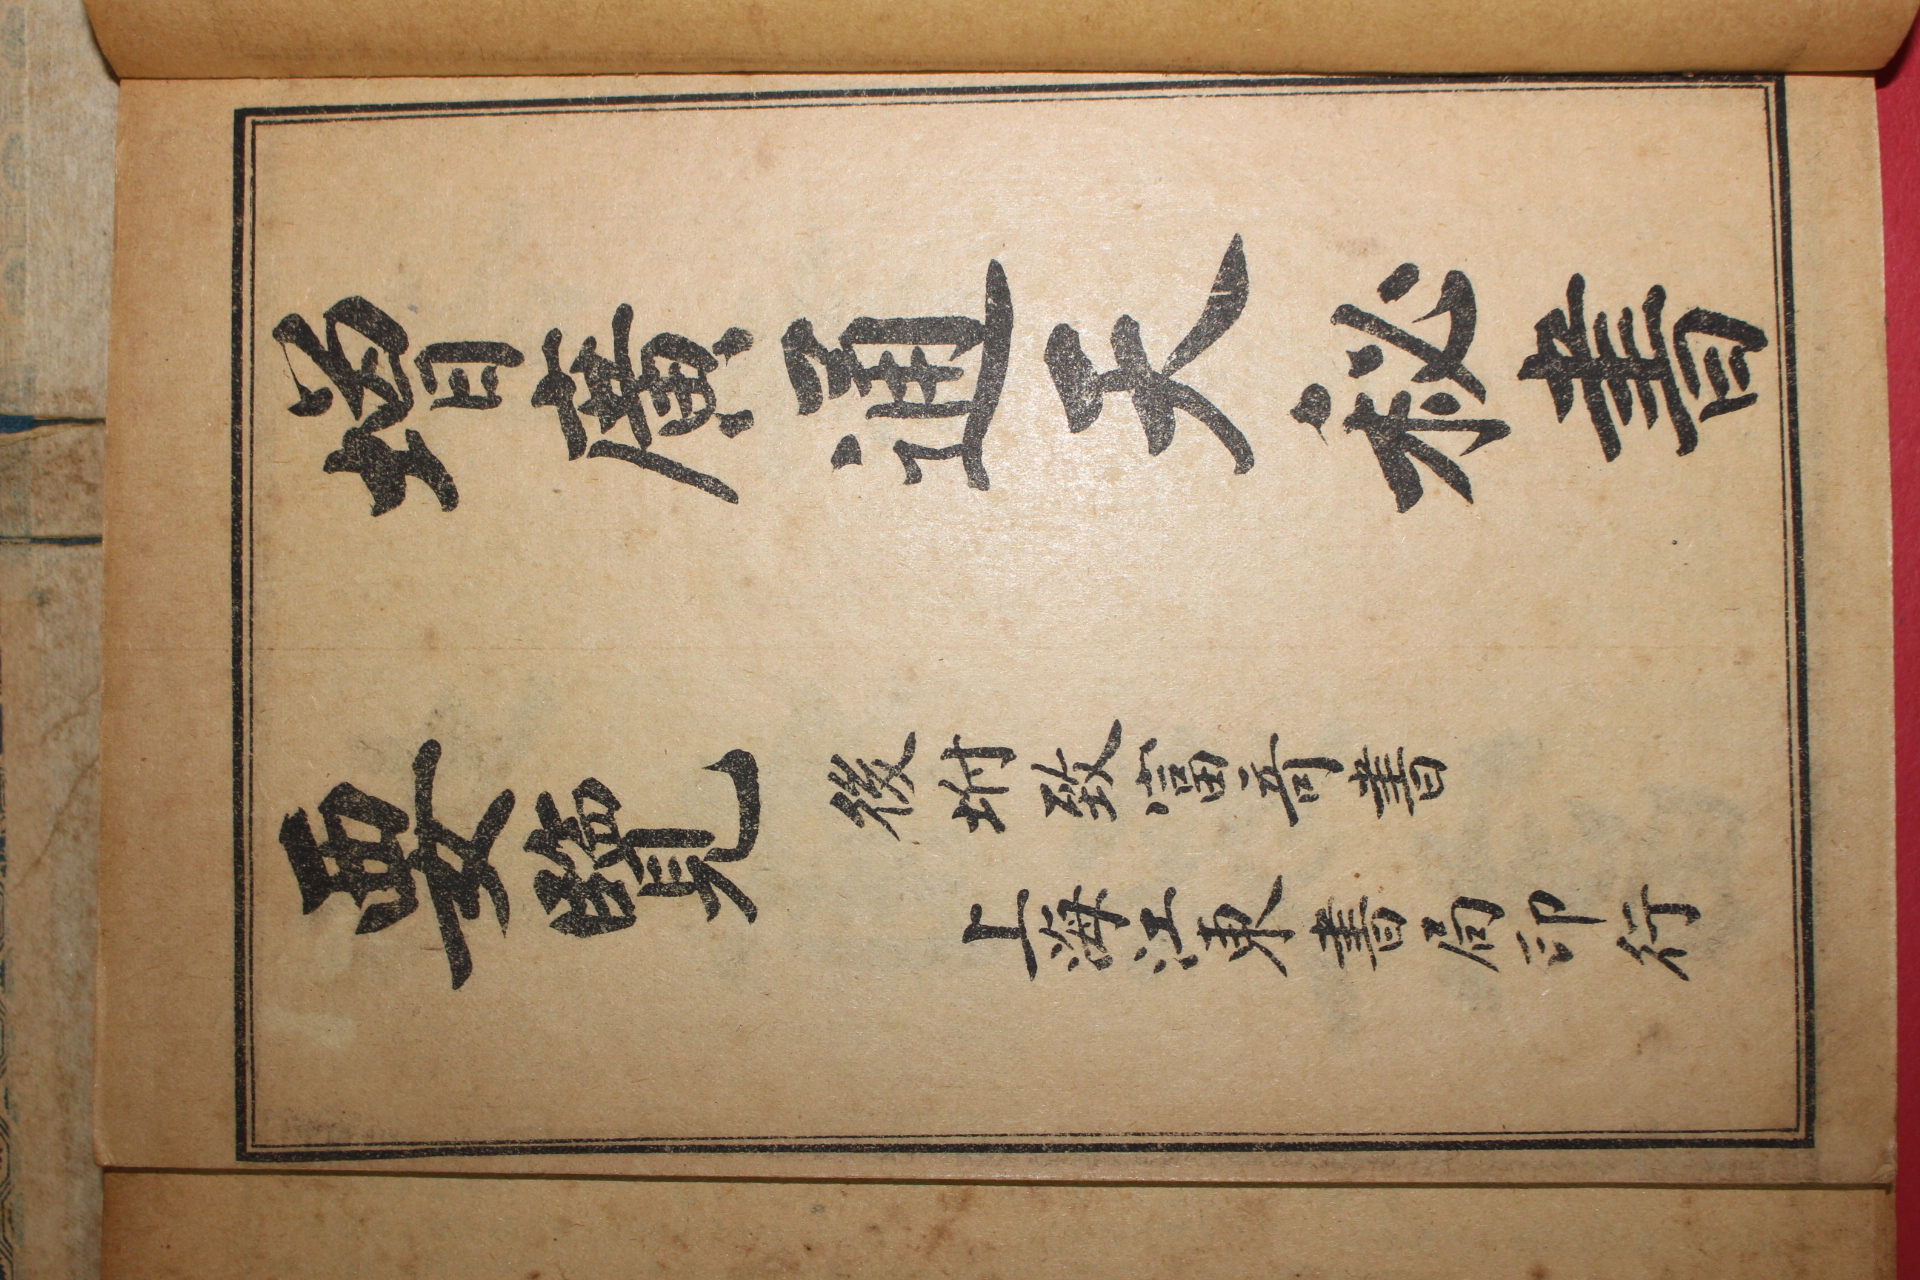 增廣通天秘書
要覽
後附致富奇書
上海江東書局印行